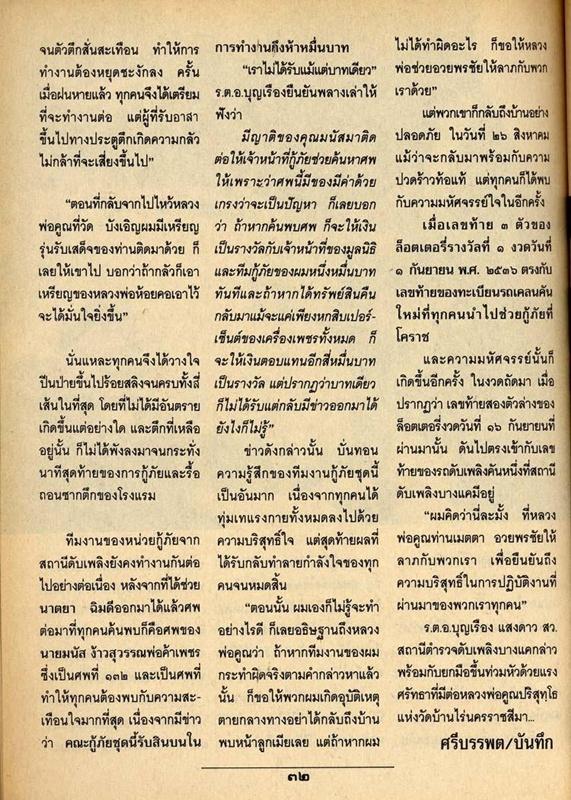 จนตัวตึกสั่นสะเทือน ทำให้การ
ทำงานต้องหยุดชะงักลง ครั้น
เมื่อฝนหายแล้ว ทุกคนจึงได้เตรียม
ที่จะทำงานต่อ แต่ผู้ที่รับอาสา
ขึ้นไปทางประตูตึกเกิดความกลัว
ไม่กล้าที่จะเสี่ยงขึ้นไป”
“ตอนที่กลับจากไปไหว้หลวง
พ่อคูณที่วัด บังเอิญผมมีเหรียญ
รุ่นรับเสด็จของท่านติดมาด้วย ก็
เลยให้เขาไป บอกว่าถ้ากลัวก็เอา
เหรียญของหลวงพ่อห้อยคอเอาไว้
จะได้มั่นใจยิ่งขึ้น”
นั่นแหละทุกคนจึงได้วางใจ
ปีนป่ายขึ้นไปร้อยสลิงจนครบทั้งสี่
เส้นในที่สุด โดยที่ไม่ได้มีอันตราย
เกิดขึ้นแต่อย่างใด และตึกที่เหลือ
อยู่นั้น ก็ไม่ได้พังลงมาจนกระทั่ง
นาทีสุดท้ายของการกู้ภัยและรื้อ
ถอนซากตึกของโรงแรม
ทีมงานของหน่วยกู้ภัยจาก
สถานีดับเพลิงยังคงทำงานกันต่อ
ไปอย่างต่อเนื่อง หลังจากที่ได้ช่วย
นาตยา ฉิมดีออกมาได้แล้วศพ
ต่อมาที่ทุกคนค้นพบก็คือศพของ
นายมนัส ง้าวสุวรรณพ่อค้าเพชร
ซึ่งเป็นศพที่ ๑๓๒ และเป็นศพที่
ทำให้ทุกคนต้องพบกับความสะ-
เทือนใจมากที่สุด เนื่องจากมีข่าว
ว่า คณะกู้ภัยชุดนี้รับสินบนใน
การทำงานถึงห้าหมื่นบาท
“เราไม่ได้รับแม้แต่บาทเดียว”
ร.ต.อ.บุญเรืองยืนยันพลางเล่าให้
ฟังว่า
มีญาติของคุณมนัสมาติด
ต่อให้เจ้าหน้าที่กู้ภัยช่วยค้นหาศพ
ให้เพราะว่าศพนี้มีของมีค่าด้วย
เกรงว่าจะเป็นปัญหา ก็เลยบอก
ว่า ถ้าหากค้นพบศพ ก็จะให้เงิน
เป็นรางวัลกับเจ้าหน้าที่ของมูลนิธิ
และทีมกู้ภัยของผมหนึ่งหมื่นบาท
ทันทีและถ้าหากได้ทรัพย์สินคืน
กลับมาแม้จะแค่เพียงหกสิบเปอร์-
เซ็นต์ของเครื่องเพชรทั้งหมด ก็
จะให้เงินตอบแทนอีกสี่หมื่นบาท
เป็นรางวัล แต่ปรากฏว่าบาทเดียว
ก็ไม่ได้รับแต่กลับมีข่าวออกมาได้
ยังไงก็ไม่รู้”
ข่าวดังกล่าวนั้น บั่นทอน
ความรู้สึกของทีมงานกู้ภัยชุดนี้
เป็นอันมาก เนื่องจากทุกคนได้
ทุ่มเทแรงกายทั้งหมดลงไปด้วย
ความบริสุทธิ์ใจ แต่สุดท้ายผลที่
ได้รับกลับทำลายกำลังใจของทุก
คนจนหมดสิ้น
“ตอนนั้น ผมเองก็ไม่รู้จะทำ
อย่างไรดี ก็เลยอธิษฐานถึงหลวง
พ่อคูณว่า ถ้าหากทีมงานของผม
กระทำผิดจริงตามคำกล่าวหาแล้ว
นั้น ก็ขอให้พวกผมเกิดอุบัติเหตุ
ตายกลางทางอย่าได้กลับถึงบ้าน
พบหน้าลูกเมียเลย แต่ถ้าหากผม
ไม่ได้ทำผิดอะไร ก็ขอให้หลวง
พ่อช่วยอวยพรชัยให้ลาภกับพวก
เราด้วย”
แต่พวกเขาก็กลับถึงบ้านอย่าง
ปลอดภัย ในวันที่ ๒๖ สิงหาคม
แม้ว่าจะกลับมาพร้อมกับความ
ปวดร้าวท้อแท้ แต่ทุกคนก็ได้พบ
กับความมหัศจรรย์ใจในอีกครั้ง
เมื่อเลขท้าย ๓ ตัวของ
ล็อตเตอรี่รางวัลที่ ๑ งวดวันที่
๑ กันยายน พ.ศ. ๒๕๓๖ ตรงกับ
เลขท้ายของทะเบียนรถเคลนคัน
ใหม่ที่ทุกคนนำไปช่วยกู้ภัยที่
โคราช
และความมหัศจรรย์นั้นก็
เกิดขึ้นอีกครั้ง ในงวดถัดมา เมื่อ
ปรากฏว่า เลขท้ายสองตัวล่างของ
ล็อตเตอรี่งวดวันที่ ๑๖ กันยายนที่
ผ่านมานั้น ดันไปตรงเข้ากับเลข
ท้ายของรถดับเพลิงคันหนึ่งที่สถานี
ดับเพลิงบางแคมีอยู่
“ผมคิดว่านี่ละมั้ง ที่หลวง
พ่อคูณท่านเมตตา อวยพรชัยให้
ลาภกับพวกเรา เพื่อยืนยันถึง
ความบริสุทธิ์ในการปฏิบัติงานที่
ผ่านมาของพวกเราทุกคน”
ร.ต.อ.บุญเรือง แสงดาว สว.
สถานีตำรวจดับเพลิงบางแคกล่าว
พร้อมกับยกมือขึ้นท่วมหัวด้วยแรง
ศรัทธาที่มีต่อหลวงพ่อคูณปริสุทฺโธ
แห่งวัดบ้านไร่นครราชสีมา...
ศรีบรรพต/บันทึก
๓๒